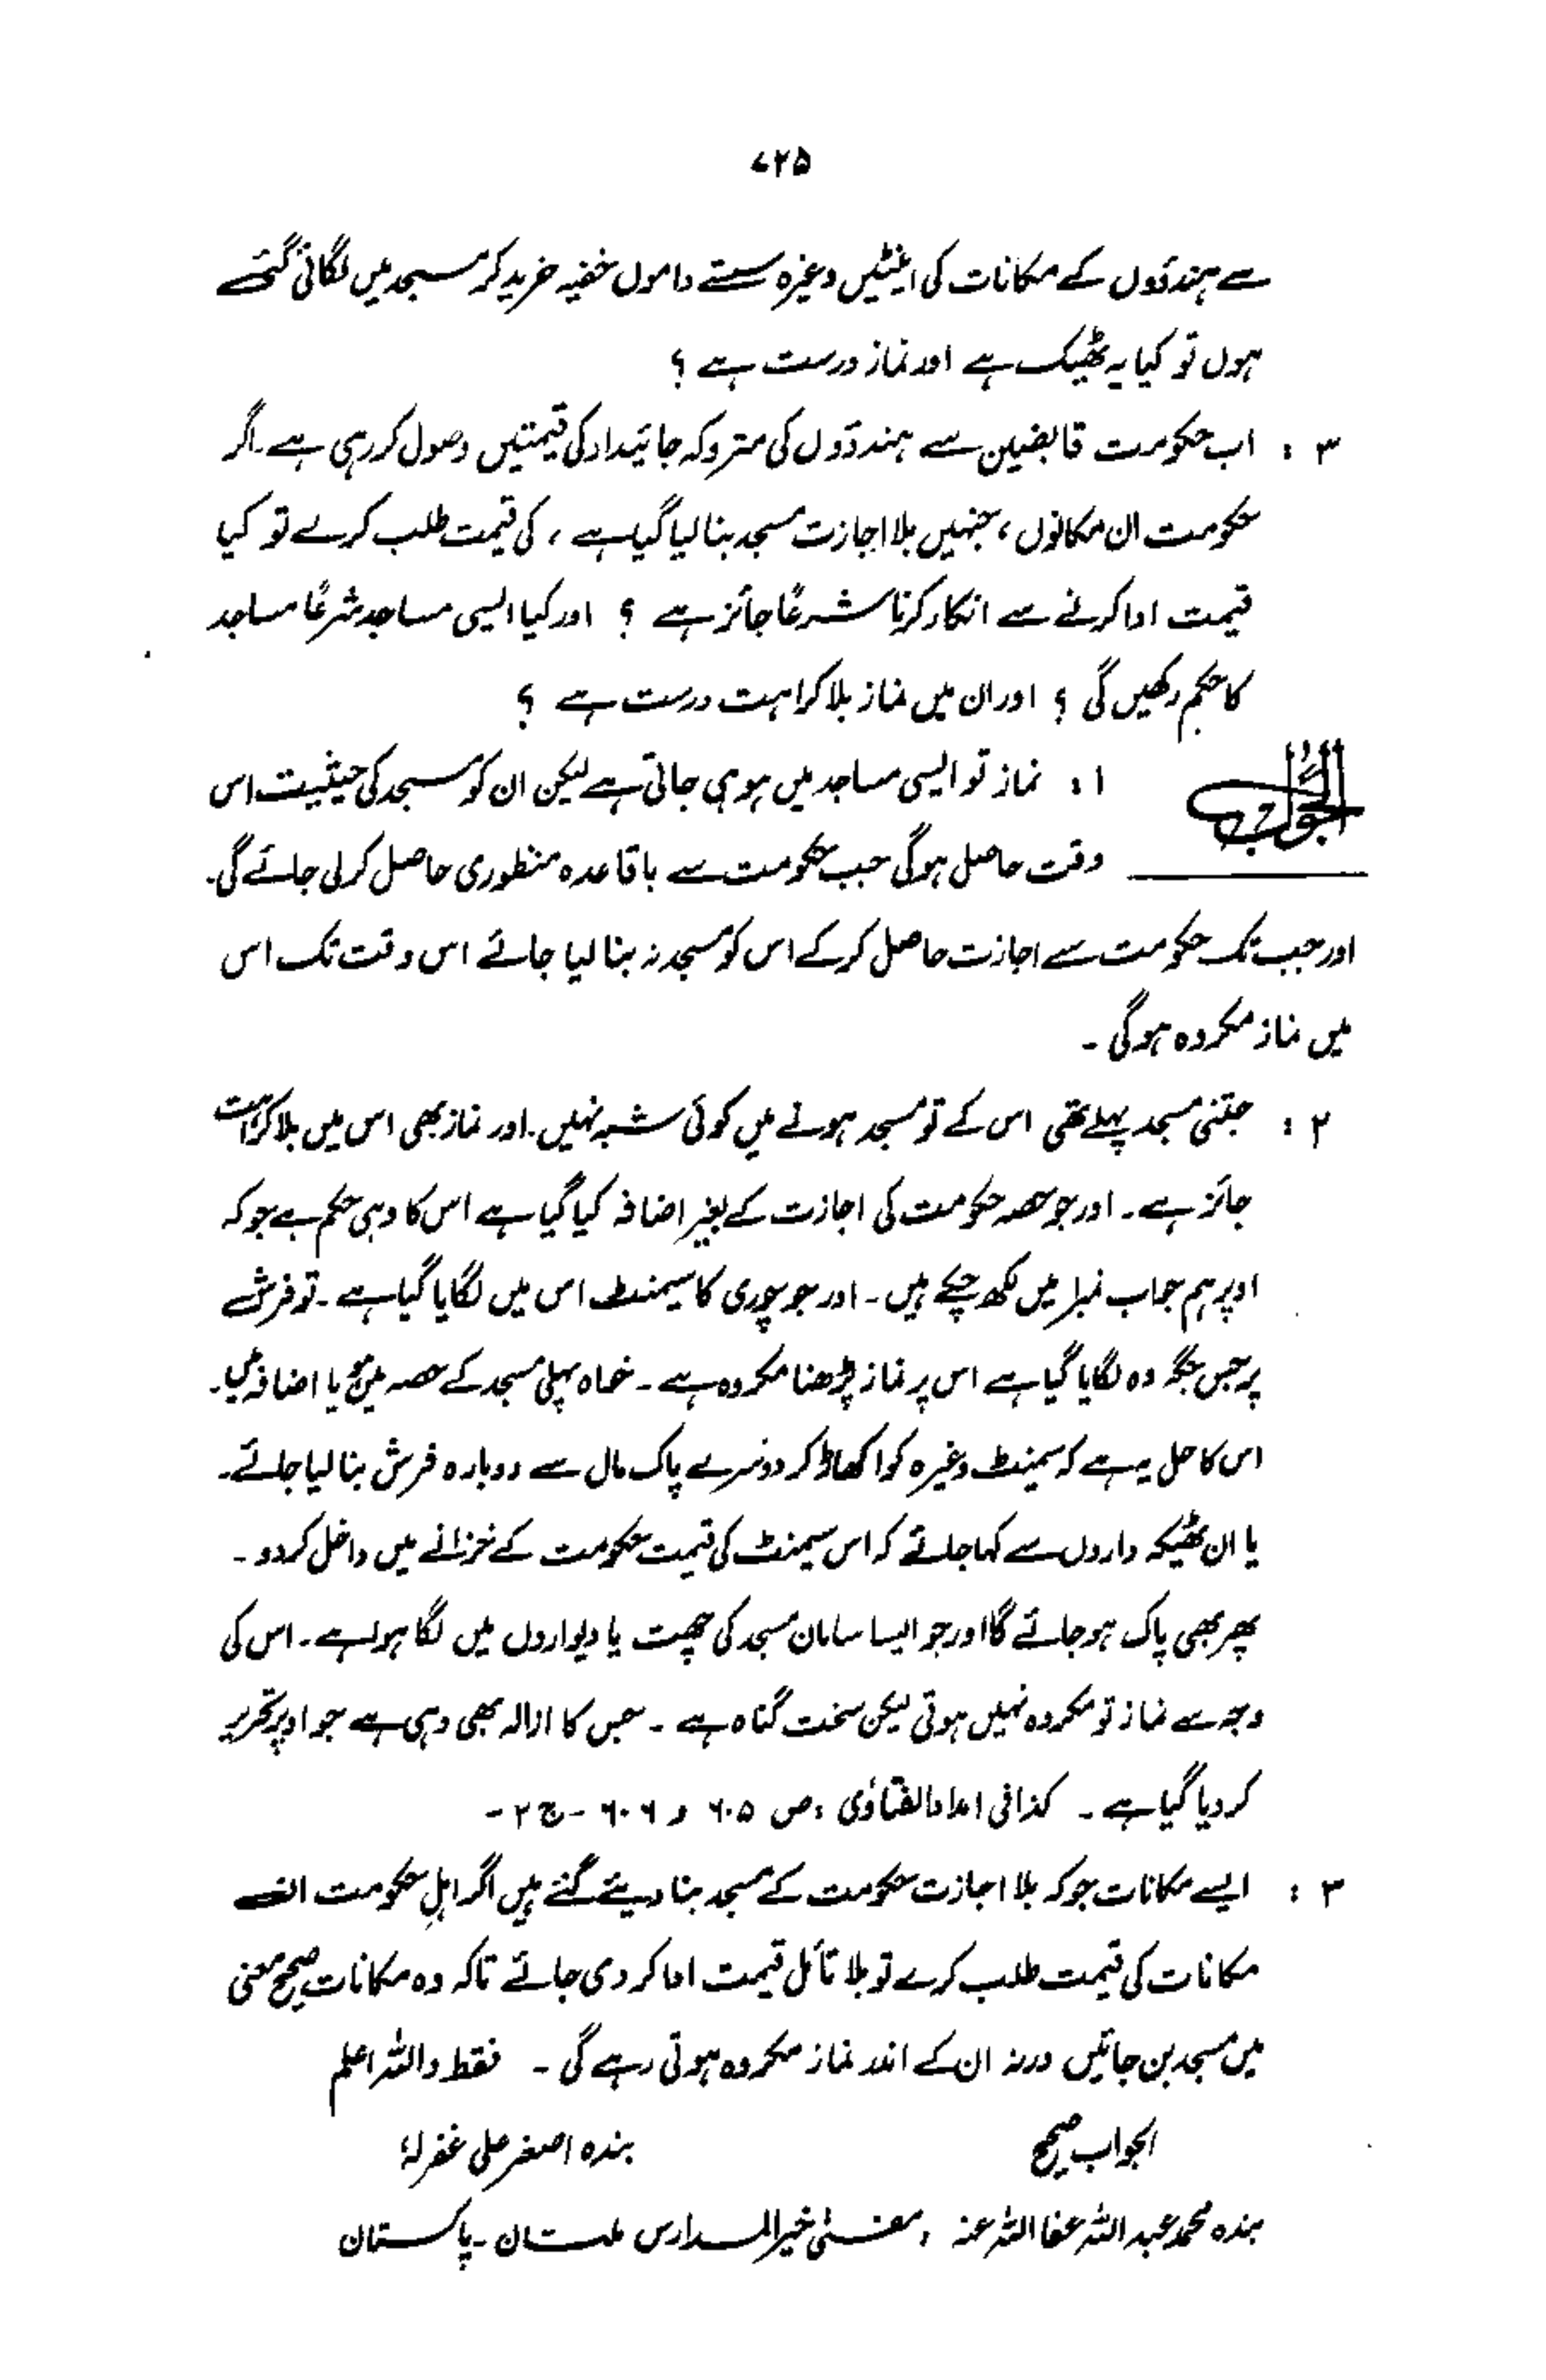 ۷۲۵
سے ہندوؤں کے مکانات کی اینٹیں وغیرہ سستے داموں خفیہ خرید کر مسجد میں لگائی گئے
ہوں تو کیا یہ ٹھیک ہے اور نماز درست ہے ؟
۳ : اب حکومت قابضین سے ہندوؤں کی متروکہ جائیداد کی قیمتیں وصول کر رہی ہے ۔ اگر
حکومت ان مکانوں ، جنہیں بلا اجازت مسجد بنا لیا گیا ہے ، کی قیمت طلب کرے تو کیا
قیمت ادا کرنے سے انکار کرنا شرعًا جائز ہے ؟ اور کیا ایسی مساجد شرعًا مساجد
کا حکم رکھیں گی ؟ اور ان میں نماز بلا کراہت درست ہے ؟
الجواب ۱ : نماز تو ایسی مساجد میں ہو ہی جاتی ہے لیکن ان کو مسجد کی حیثیت اس
وقت حاصل ہوگی جب حکومت سے باقاعدہ منظوری حاصل کر لی جائے گی ۔
اور جب تک حکومت سے اجازت حاصل کر کے اس کو مسجد نہ بنا لیا جائے اس وقت تک اس
میں نماز مکروہ ہوگی ۔
۲ : جتنی مسجد پہلے تھی اس کے تو مسجد ہونے میں کوئی شبہ نہیں ۔ اور نماز بھی اس میں بلا کراہت
جائز ہے ۔ اور جو حصہ حکومت کی اجازت کے بغیر اضافہ کیا گیا ہے اس کا وہی حکم ہے جو کہ
اوپر ہم جواب نمبر ۱ میں لکھ چکے ہیں ۔ اور جو چوری کا سیمنٹ اس میں لگایا گیا ہے ۔ تو فرش
پر جس جگہ وہ لگایا گیا ہے اس پر نماز پڑھنا مکروہ ہے ۔ خواہ پہلی مسجد کے حصہ میں ہو یا اضافہ میں ۔
اس کا حل یہ ہے کہ سیمنٹ وغیرہ کو اکھاڑ کر دوسرے پاک مال سے دوبارہ فرش بنا لیا جائے ۔
یا ان ٹھیکہ داروں سے کہا جائے کہ اس سیمنٹ کی قیمت حکومت کے خزانے میں داخل کردو ۔
پھر بھی پاک ہو جائے گا اور جو ایسا سامان مسجد کی چھت یا دیواروں میں لگا ہوا ہے ۔ اس کی
وجہ سے نماز تو مکروہ نہیں ہوتی لیکن سخت گناہ ہے ۔ جس کا ازالہ بھی وہی ہے جو اوپر تحریر
کر دیا گیا ہے ۔ کذا فی امداد الفتاوٰی ، ص ۶۰۵ و ۶۰۶ - ج ۲ -
۳ : ایسے مکانات جو کہ بلا اجازت حکومت کے مسجد بنا دیئے گئے ہیں اگر اہلِ حکومت ان
مکانات کی قیمت طلب کرے تو بلا تأمل قیمت ادا کر دی جائے تاکہ وہ مکانات صحیح معنی
میں مسجد بن جائیں ورنہ ان کے اندر نماز مکروہ ہوتی رہے گی ۔ فقط واللہ اعلم
الجواب صحیح بندہ اصغر علی غفرلہٗ
بندہ محمد عبد اللہ عفا اللہ عنہ ، مفتی خیر المدارس ملتان ۔ پاکستان